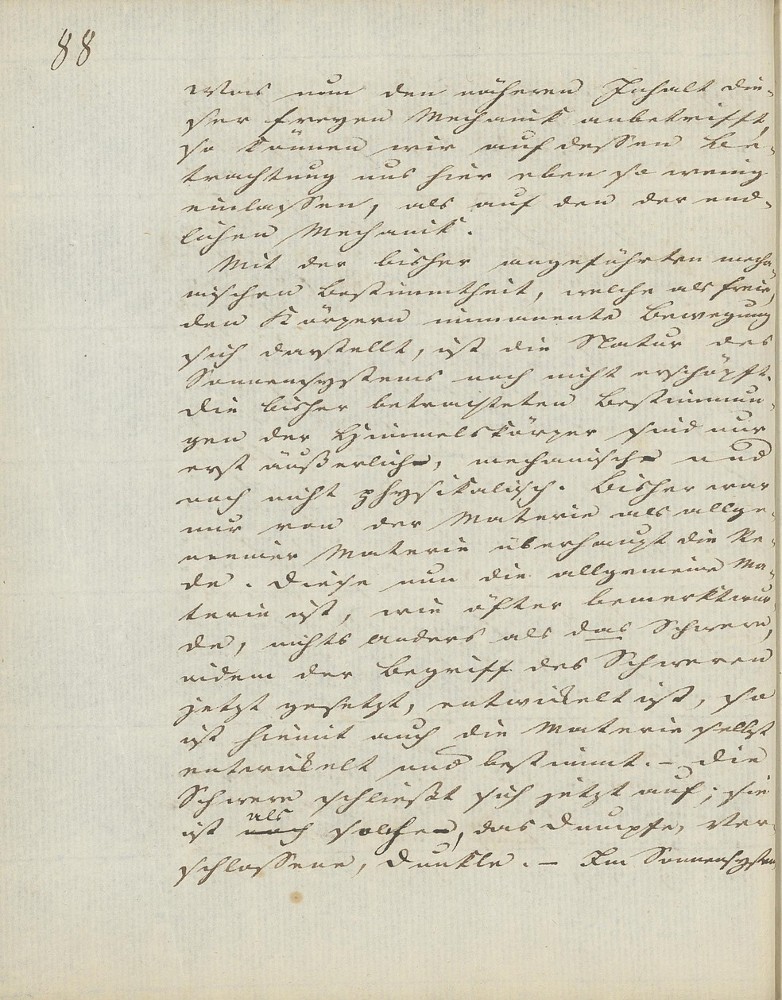 88
Was nun den näheren Inhalt die-
ser freyen Mechanik anbetrifft,
so können wir auf dessen Be-
trachtung uns hier eben so wenig
einlassen, als auf den der end-
lichen Mechanik.
Mit der bisher angeführten mecha-
nischen Bestimmtheit, welche als freie,
den Körpern immanente Bewegung
sich darstellt, ist die Natur des
Sonnensystems noch nicht erschöpft.
Die bisher betrachteten Bestimmun-
gen der Himmelskörper sind nur
erst äußerlich, mechanisch und
noch nicht physikalisch. Bisher war
nur von der Materie als allge-
meiner Materie überhaupt die Re-
de. Diese nun die allgemeine Ma-
terie ist, wie öfter bemerkt wur-
de, nichts anders als das Schwere,
indem der Begriff des Schweren
jetzt gesetzt, entwickelt ist, so
ist hiemit auch die Materie selbst
entwickelt und bestimmt. – Die
Schwere schließt sich jetzt auf; sie
ist als solche, das Dumpfe, Ver-
schlossene, Dunkle. – Im Sonnensystem